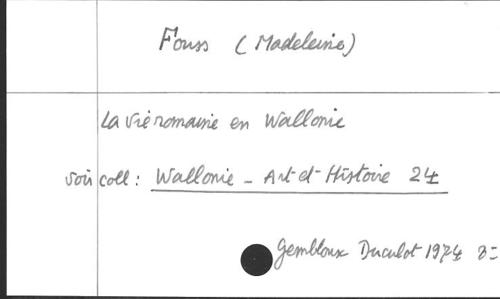 Fouss (Madeleine)
La vie romaine en Wallonie
voir coll: Wallonie - Art et Histoire 24
Gembloux Duculot 1974 8=